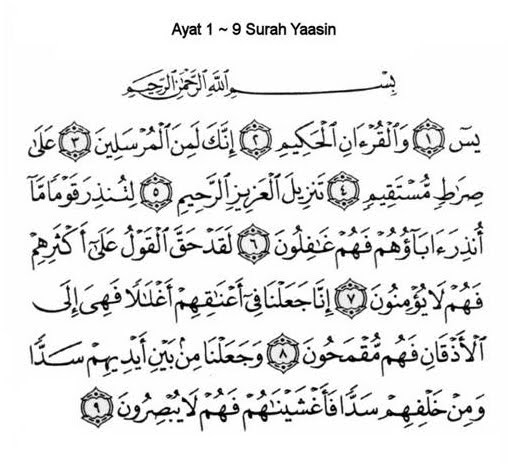 Ayat 1 ~ 9 Surah Yaasin
بِسْمِ ٱللَّهِ ٱلرَّحْمَٰنِ ٱلرَّحِيمِ
يسٓ ١ وَٱلْقُرْءَانِ ٱلْحَكِيمِ ٢ إِنَّكَ لَمِنَ ٱلْمُرْسَلِينَ ٣ عَلَىٰ
صِرَٰطٍ مُّسْتَقِيمٍ ٤ تَنزِيلَ ٱلْعَزِيزِ ٱلرَّحِيمِ ٥ لِتُنذِرَ قَوْمًا مَّآ
أُنذِرَ ءَابَآؤُهُمْ فَهُمْ غَٰفِلُونَ ٦ لَقَدْ حَقَّ ٱلْقَوْلُ عَلَىٰٓ أَكْثَرِهِمْ
فَهُمْ لَا يُؤْمِنُونَ ٧ إِنَّا جَعَلْنَا فِىٓ أَعْنَٰقِهِمْ أَغْلَٰلًا فَهِىَ إِلَى
ٱلْأَذْقَانِ فَهُم مُّقْمَحُونَ ٨ وَجَعَلْنَا مِنۢ بَيْنِ أَيْدِيهِمْ سَدًّا
وَمِنْ خَلْفِهِمْ سَدًّا فَأَغْشَيْنَٰهُمْ فَهُمْ لَا يُبْصِرُونَ ٩